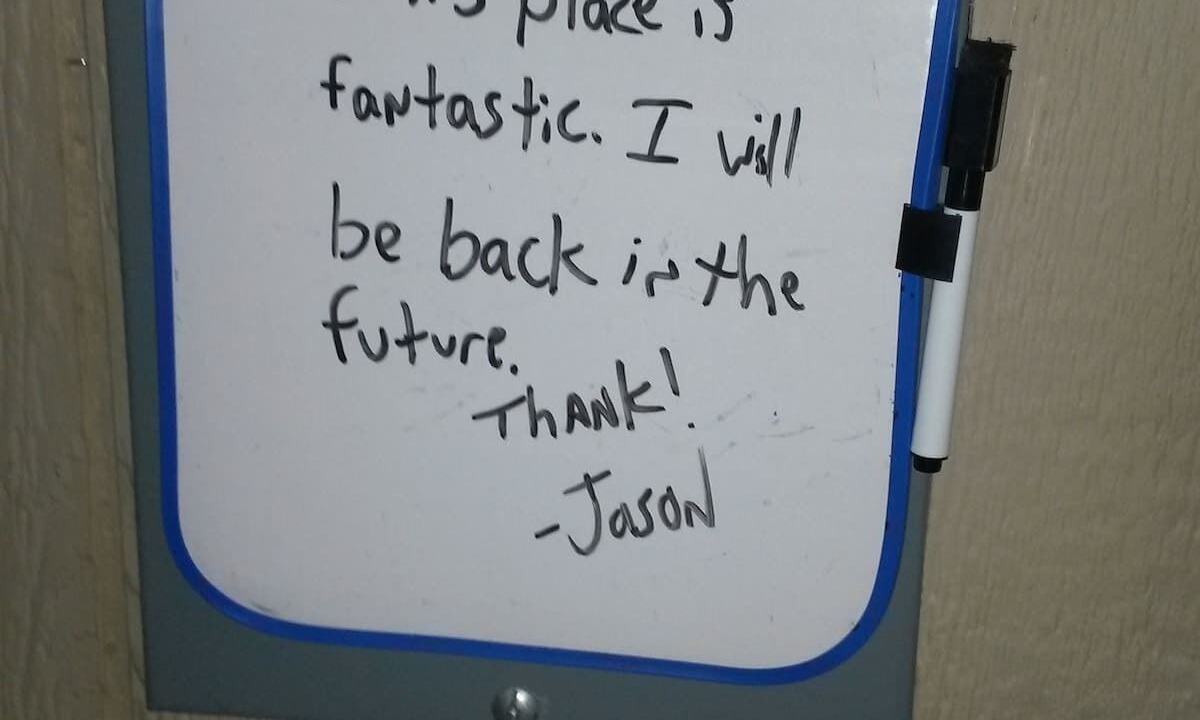 place is
fantastic. I will
be back in the
future.
THANK!
-Jason